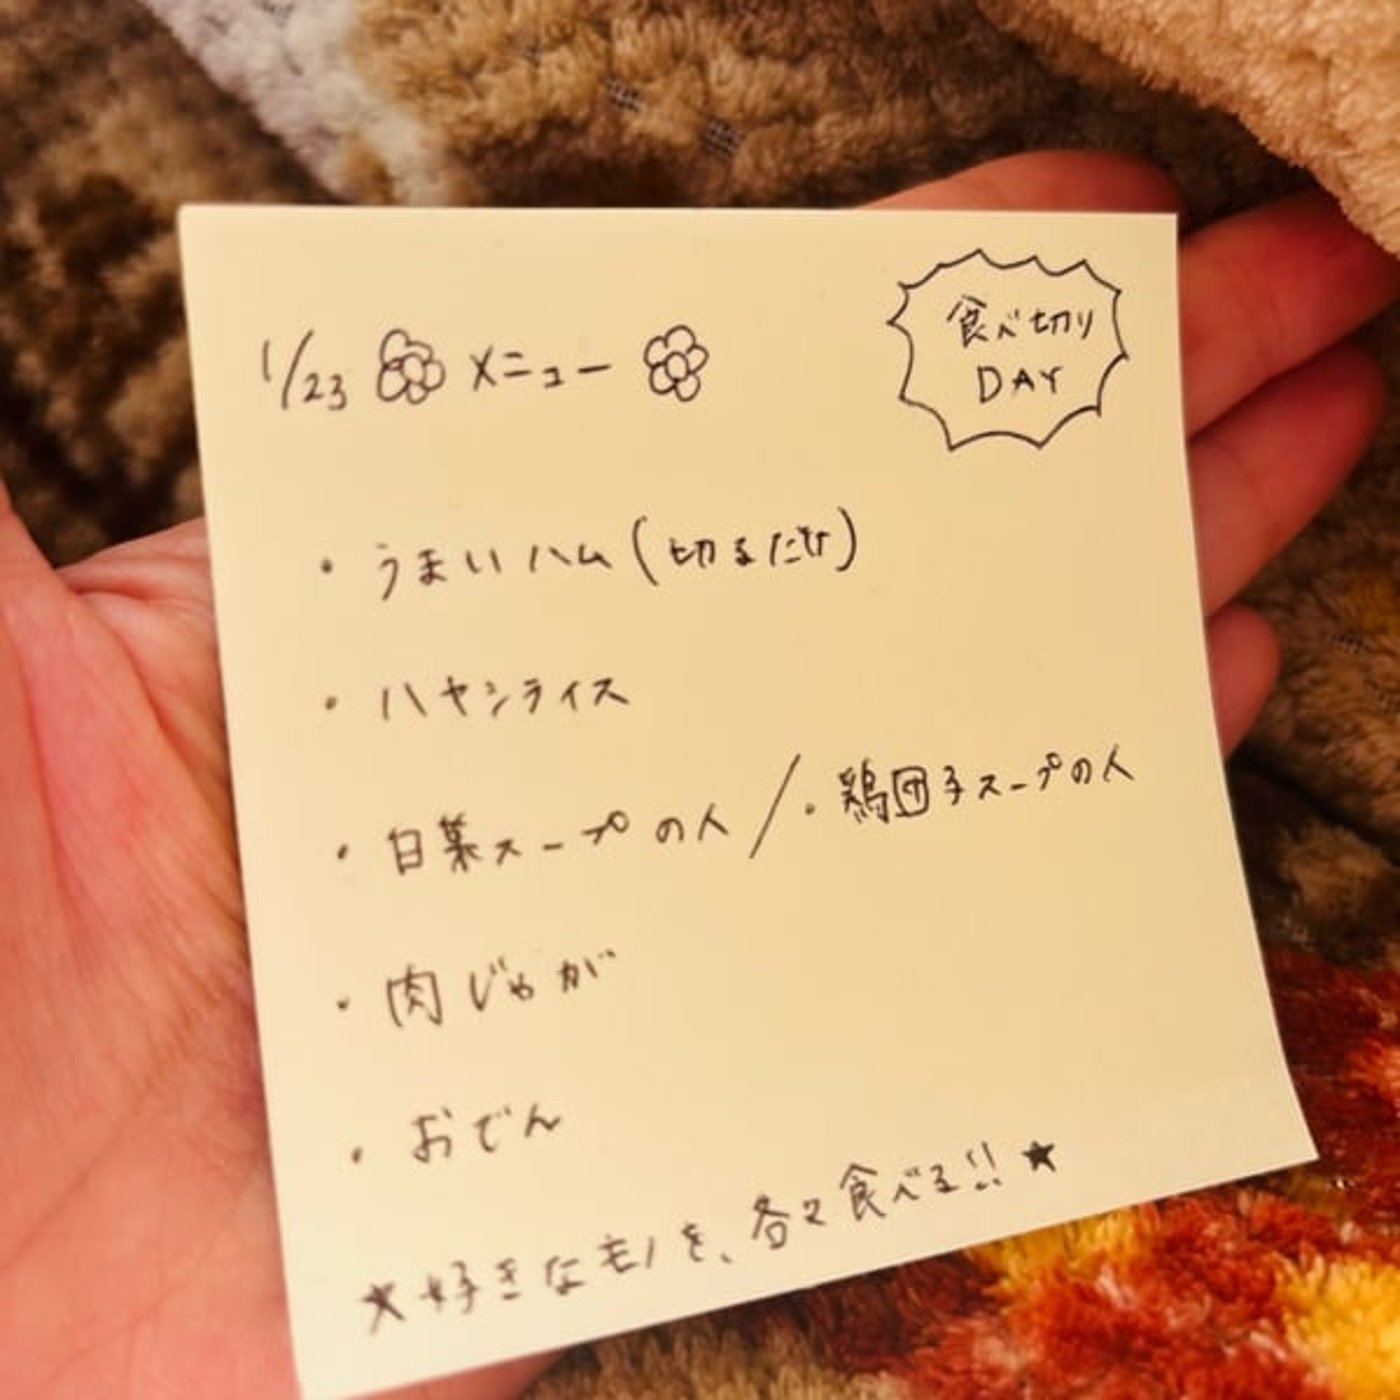 1/23 メニュー
食べ切り
DAY
・うまいハム(切るだけ)
・ハヤシライス
・白菜スープの人/・鶏団子スープの人
・肉じゃが
・おでん
★好きなモノを、各々食べる!!★